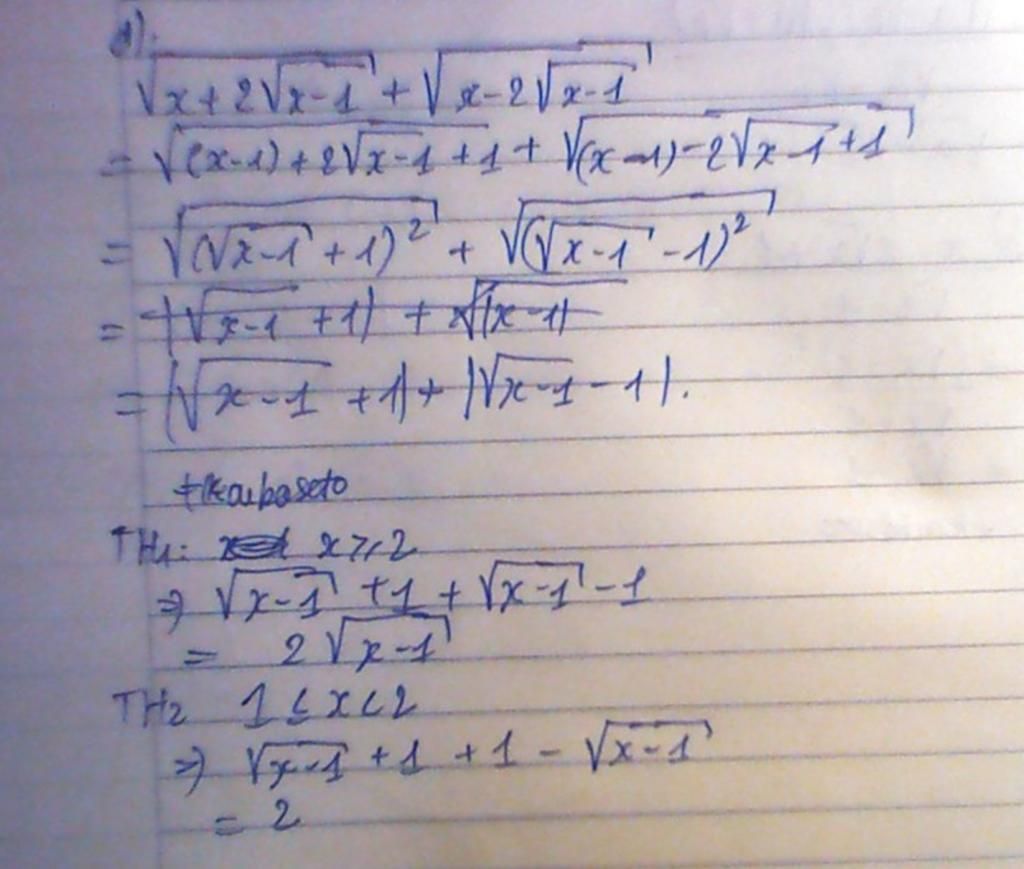 a).
√(x+2√(x-1)) + √(x-2√(x-1))
= √((x-1)+2√(x-1)+1) + √((x-1)-2√(x-1)+1)
= √((√(x-1)+1)²) + √((√(x-1)-1)²)
= |√(x-1)+1| + |√(x-1)-1|.
TH1: x≥2
⇒ √(x-1)+1+√(x-1)-1
= 2√(x-1)
TH2 1≤x<2
⇒ √(x-1)+1+1-√(x-1)
= 2